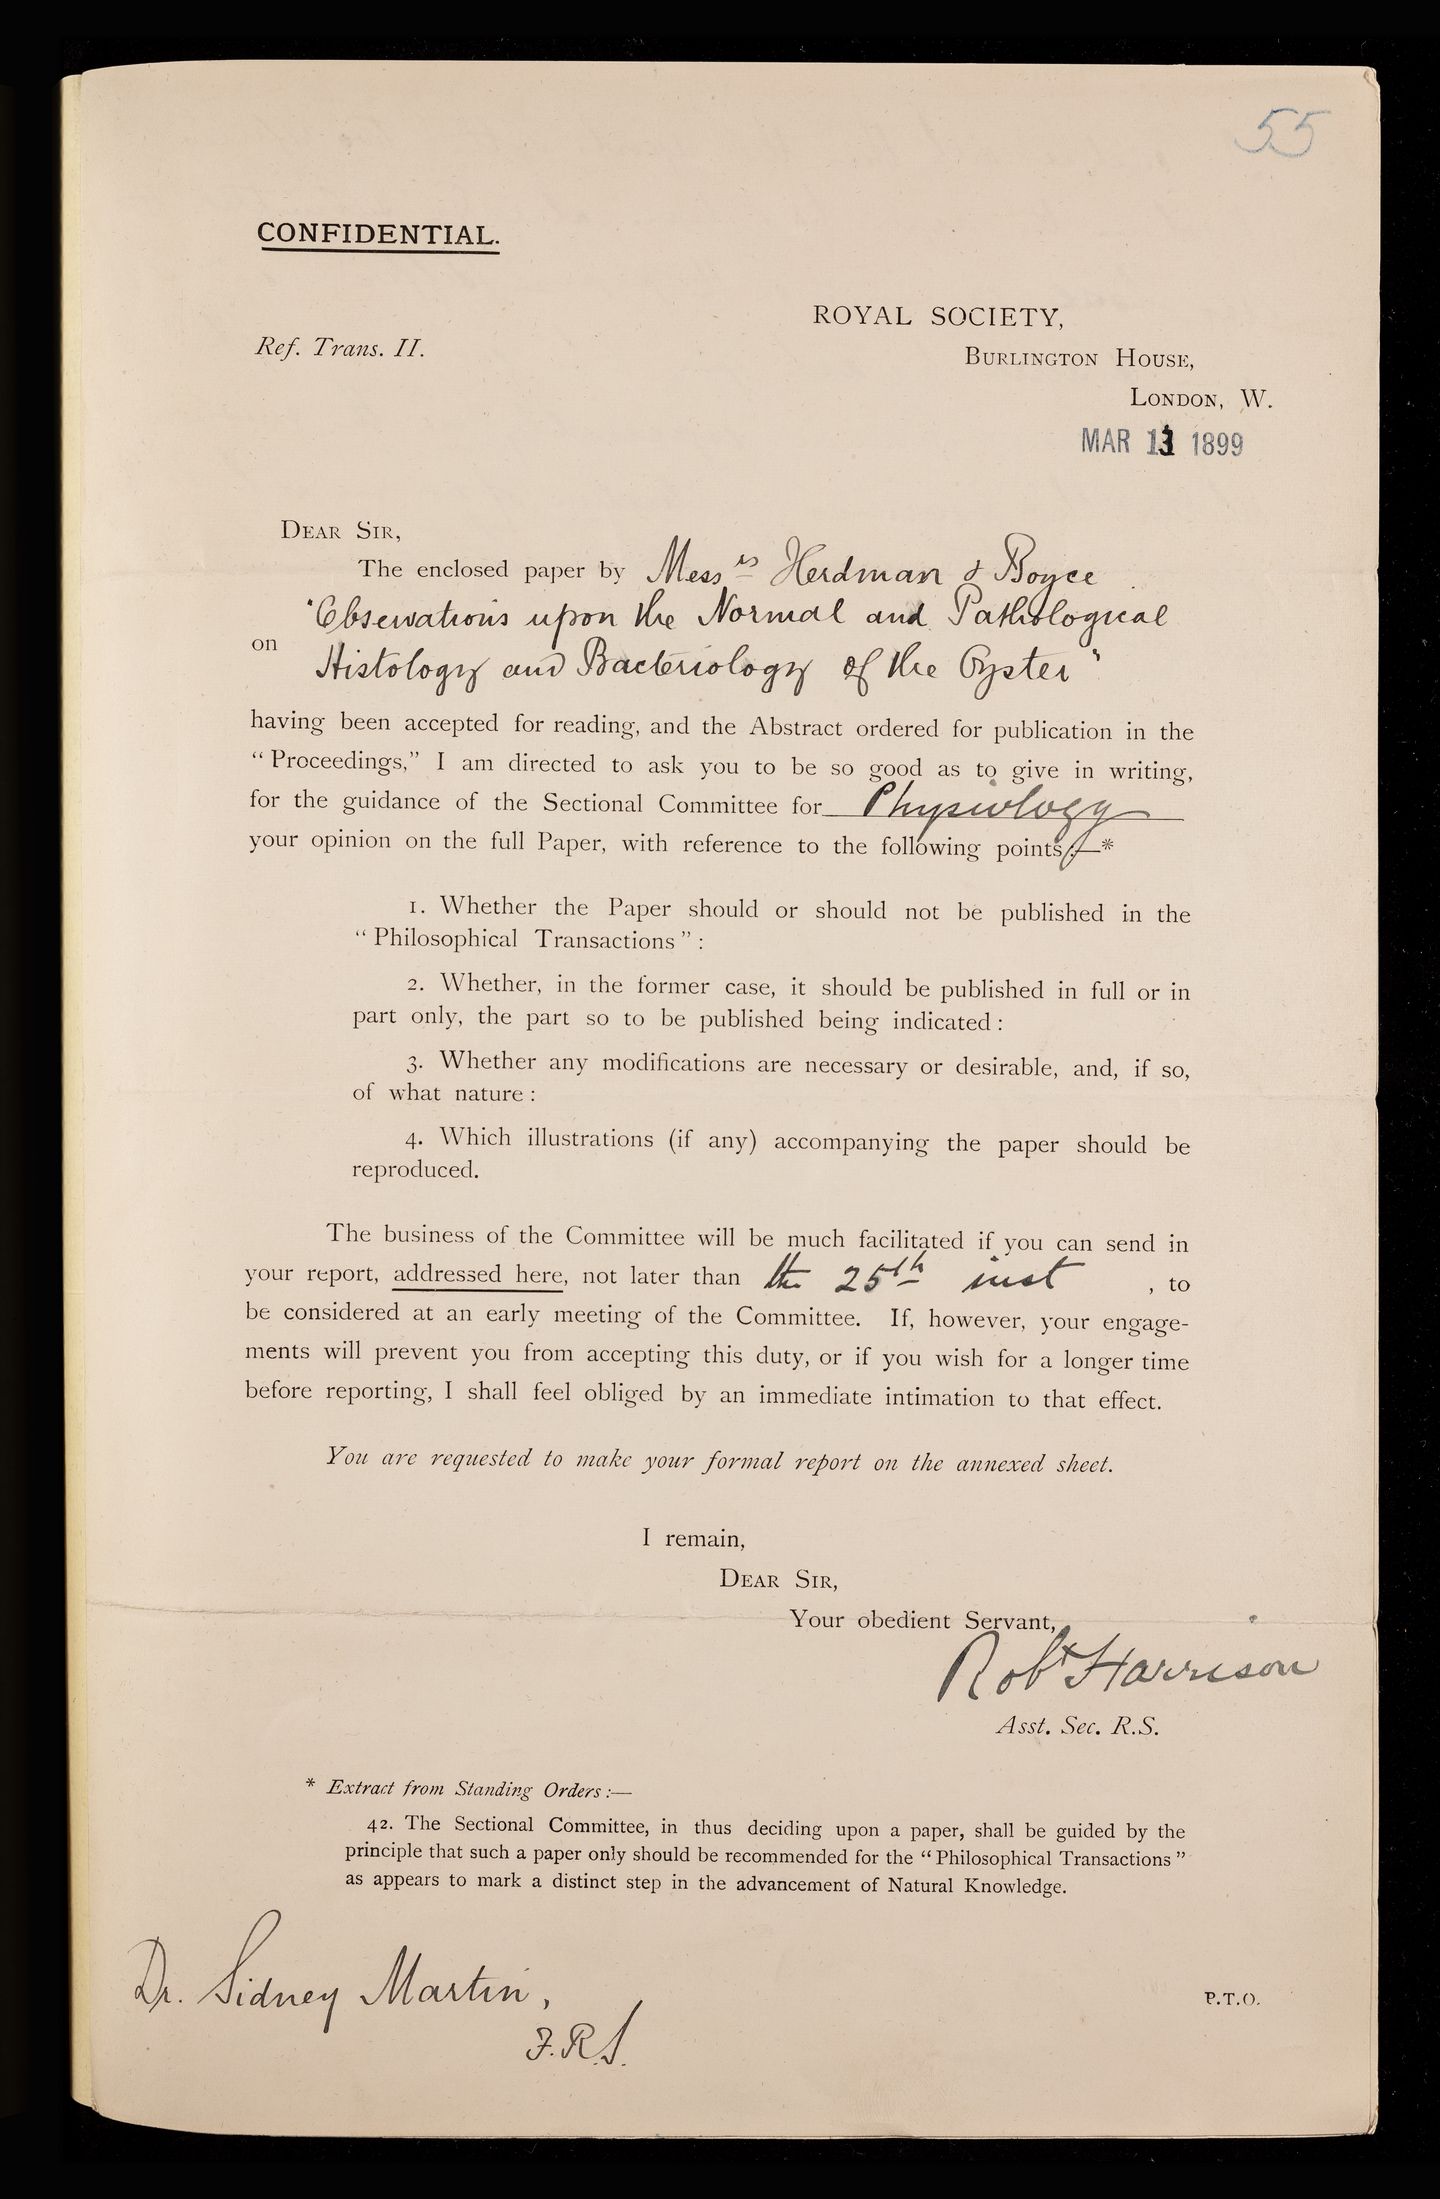 55
CONFIDENTIAL.
ROYAL SOCIETY,
Ref. Trans. II.
BURLINGTON HOUSE,
LONDON, W.
MAR 1899
DEAR SIR,
The enclosed paper by Messrs Herdman & Boyce
"Observations upon the Normal and Pathological
on
Histology and Bacteriology of the Oyster"
having been accepted for reading, and the Abstract ordered for publication in the
"Proceedings," I am directed to ask you to be so good as to give in writing,
for the guidance of the Sectional Committee for Physiology
your opinion on the full Paper, with reference to the following points:—*
1. Whether the Paper should or should not be published in the
"Philosophical Transactions":
2. Whether, in the former case, it should be published in full or in
part only, the part so to be published being indicated:
3. Whether any modifications are necessary or desirable, and, if so,
of what nature:
4. Which illustrations (if any) accompanying the paper should be
reproduced.
The business of the Committee will be much facilitated if you can send in
your report, addressed here, not later than the 25th inst, to
be considered at an early meeting of the Committee. If, however, your engage-
ments will prevent you from accepting this duty, or if you wish for a longer time
before reporting, I shall feel obliged by an immediate intimation to that effect.
You are requested to make your formal report on the annexed sheet.
I remain,
DEAR SIR,
Your obedient Servant,
Robt Harrison
Asst. Sec. R.S.
* Extract from Standing Orders:—
42. The Sectional Committee, in thus deciding upon a paper, shall be guided by the
principle that such a paper only should be recommended for the "Philosophical Transactions"
as appears to mark a distinct step in the advancement of Natural Knowledge.
Dr. Sidney Martin,
F.R.S.
P.T.O.